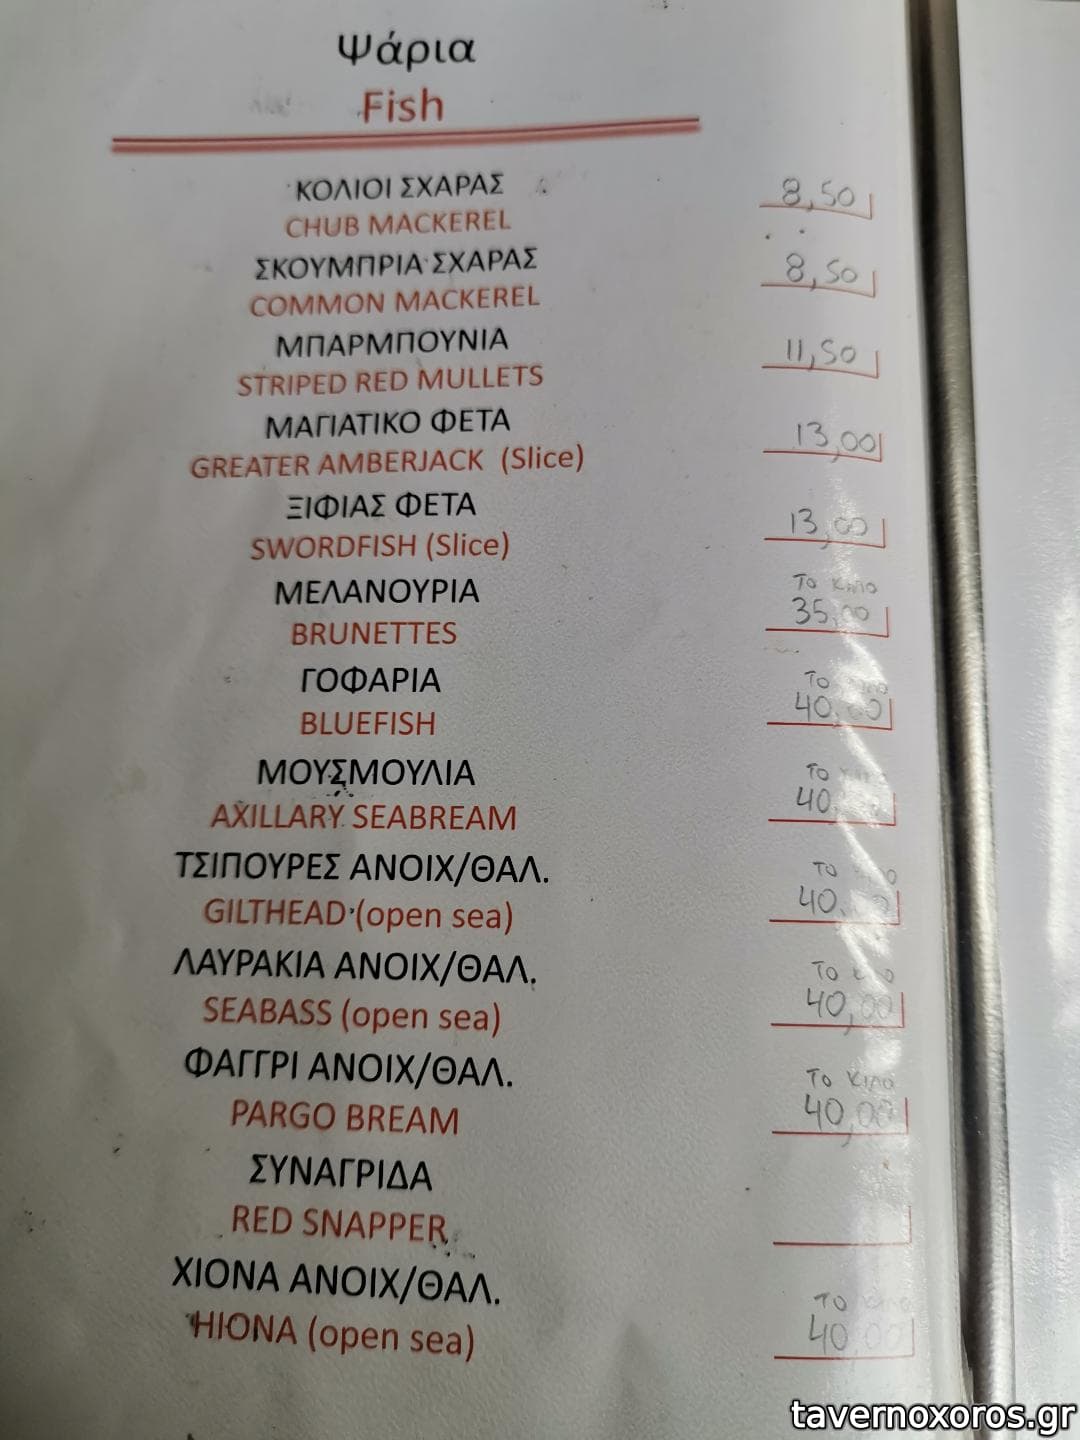 Ψάρια
Fish
ΚΟΛΙΟΙ ΣΧΑΡΑΣ 8,50
CHUB MACKEREL
ΣΚΟΥΜΠΡΙΑ ΣΧΑΡΑΣ 8,50
COMMON MACKEREL
ΜΠΑΡΜΠΟΥΝΙΑ 11,50
STRIPED RED MULLETS
ΜΑΓΙΑΤΙΚΟ ΦΕΤΑ 13,00
GREATER AMBERJACK (Slice)
ΞΙΦΙΑΣ ΦΕΤΑ 13,00
SWORDFISH (Slice)
ΜΕΛΑΝΟΥΡΙΑ ΤΟ ΚΙΛΟ
BRUNETTES 35,00
ΓΟΦΑΡΙΑ ΤΟ
BLUEFISH 40,00
ΜΟΥΣΜΟΥΛΙΑ ΤΟ
AXILLARY SEABREAM 40
ΤΣΙΠΟΥΡΕΣ ΑΝΟΙΧ/ΘΑΛ. ΤΟ
GILTHEAD (open sea) 40,00
ΛΑΥΡΑΚΙΑ ΑΝΟΙΧ/ΘΑΛ. ΤΟ
SEABASS (open sea) 40,00
ΦΑΓΓΡΙ ΑΝΟΙΧ/ΘΑΛ. ΤΟ ΚΙΛΟ
PARGO BREAM 40,00
ΣΥΝΑΓΡΙΔΑ
RED SNAPPER
ΧΙΟΝΑ ΑΝΟΙΧ/ΘΑΛ. ΤΟ
HIONA (open sea) 40,00
tavernoxoros.gr